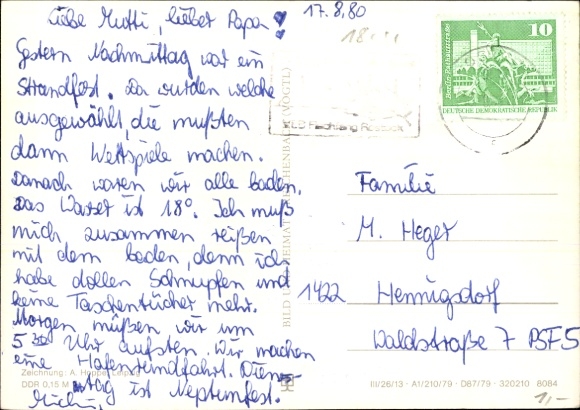 17.8.80
Liebe Mutti, lieber Papa!
Gestern Nachmittag war ein
Strandfest. Da wurden welche
ausgewählt, die mußten
dann Wettspiele machen.
Danach waren wir alle baden.
Das Wasser ist 18°. Ich muß
mich zusammen reißen
mit dem baden, denn ich
habe dollen Schnupfen und
keine Taschentücher mehr.
Morgen müßen wir um
5³⁰ Uhr aufsten. Wir machen
eine Hafenrundfahrt. Diens-
tag ist Neptunfest.
10
DEUTSCHE DEMOKRATISCHE REPUBLIK
Familie
M. Heger
1422 Hennigsdorf
Waldstraße 7 PSF 5
BILD UND HEIMAT REICHENBACH (VOGTL)
Zeichnung: A. Hoppe, Leipzig
DDR 0,15 M
III/26/13 · A1/210/79 · D87/79 · 320210 8084
1,-